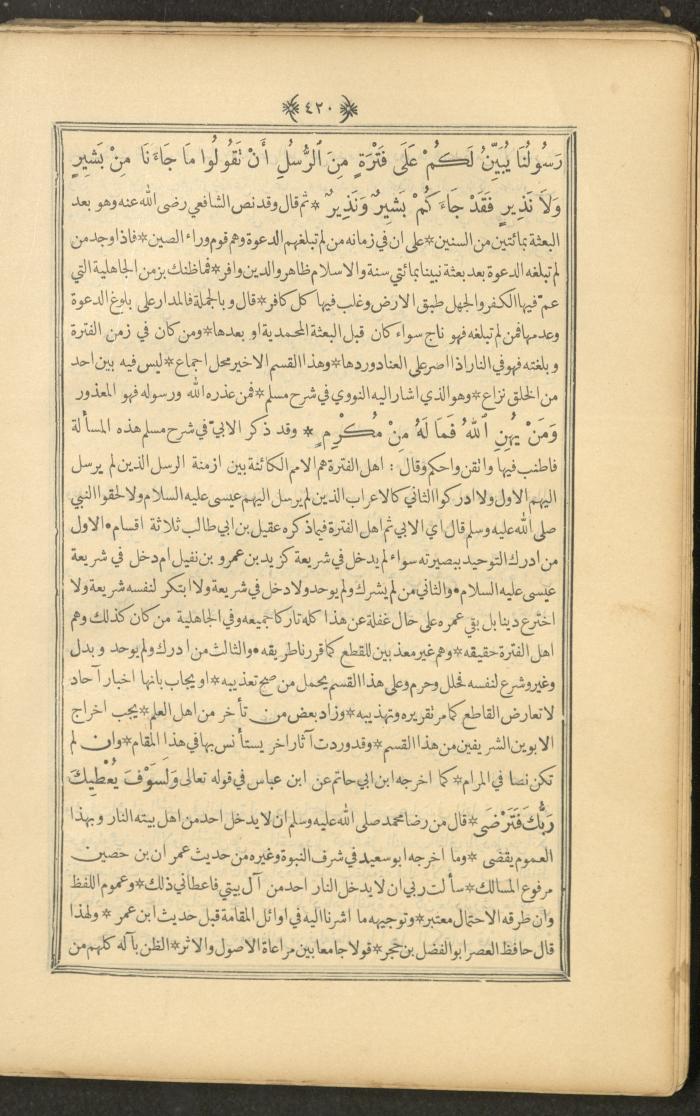 ٤٢٠
رَسُولُنَا يُبَيِّنُ لَكُمْ عَلَى فَتْرَةٍ مِنَ ٱلرُّسُلِ أَنْ تَقُولُوا مَا جَاءَنَا مِنْ بَشِيرٍ
وَلَا نَذِيرٍ فَقَدْ جَاءَكُمْ بَشِيرٌ وَنَذِيرٌ * ثم قال وقد نص الشافعي رضى الله عنه وهو بعد
البعثة بمائتين من السنين * على ان في زمانه من لم تبلغهم الدعوة وهم قوم وراء الصين * فاذا وجد من
لم تبلغه الدعوة بعد بعثة نبينا بمائتي سنة والاسلام ظاهر والدين وافر * فما ظنك بزمن الجاهلية التي
عم فيها الكفر والجهل طبق الارض وغلب فيها كل كافر * قال وبالجملة فالمدار على بلوغ الدعوة
وعدمها فمن لم تبلغه فهو ناج سواء كان قبل البعثة المحمدية او بعدها * ومن كان في زمن الفترة
وبلغته فهو في النار اذا اصر على العناد وردها * وهذا القسم الاخير محل اجماع * ليس فيه بين احد
من الخلق نزاع * وهو الذي اشار اليه النووي في شرح مسلم * فمن عذره الله ورسوله فهو المعذور
وَمَنْ يُهِنِ ٱللهُ فَمَا لَهُ مِنْ مُكْرِمٍ * وقد ذكر الابيّ في شرح مسلم هذه المسألة
فاطنب فيها واتقن واحكم وقال : اهل الفترة هم الامم الكائنة بين ازمنة الرسل الذين لم يرسل
اليهم الاول ولا ادركوا الثاني كالاعراب الذين لم يرسل اليهم عيسى عليه السلام ولا لحقوا النبي
صلى الله عليه وسلم قال اي الابي ثم اهل الفترة فيما ذكره عقيل بن ابي طالب ثلاثة اقسام • الاول
من ادرك التوحيد ببصيرته سواء لم يدخل في شريعة كزيد بن عمرو بن نفيل ام دخل في شريعة
عيسى عليه السلام • والثاني من لم يشرك ولم يوحد ولا دخل في شريعة ولا ابتكر لنفسه شريعة ولا
اخترع دينا بل بقي عمره على حال غفلة عن هذا كله تاركا جميعه وفي الجاهلية من كان كذلك وهم
اهل الفترة حقيقه * وهم غير معذبين للقطع كما قررنا طريقه • والثالث من ادرك ولم يوحد وبدل
وغير وشرع لنفسه فحلل وحرم وعلى هذا القسم يحمل من صح تعذيبه * او يجاب بانها اخبار آحاد
لا تعارض القاطع كما مر تقريره وتهذيبه * وزاد بعض من تأخر من اهل العلم * يجب اخراج
الابوين الشريفين من هذا القسم * وقد وردت آثار اخر يستأنس بها في هذا المقام * وان لم
تكن نصا في المرام * كما اخرجه ابن ابي حاتم عن ابن عباس في قوله تعالى وَلَسَوْفَ يُعْطِيكَ
رَبُّكَ فَتَرْضَى * قال من رضا محمد صلى الله عليه وسلم ان لا يدخل احد من اهل بيته النار وبهذا
العموم يقضى * وما اخرجه ابو سعيد في شرف النبوة وغيره من حديث عمران بن حصين
مرفوع المسالك * سألت ربي ان لا يدخل النار احد من آل بيتي فاعطاني ذلك * وعموم اللفظ
وان طرقه الاحتمال معتبر * وتوجيهه ما اشرنا اليه في اوائل المقامة قبل حديث ابن عمر * ولهذا
قال حافظ العصر ابو الفضل بن حجر * قولا جامعا بين مراعاة الاصول والاثر * الظن بآله كلهم من